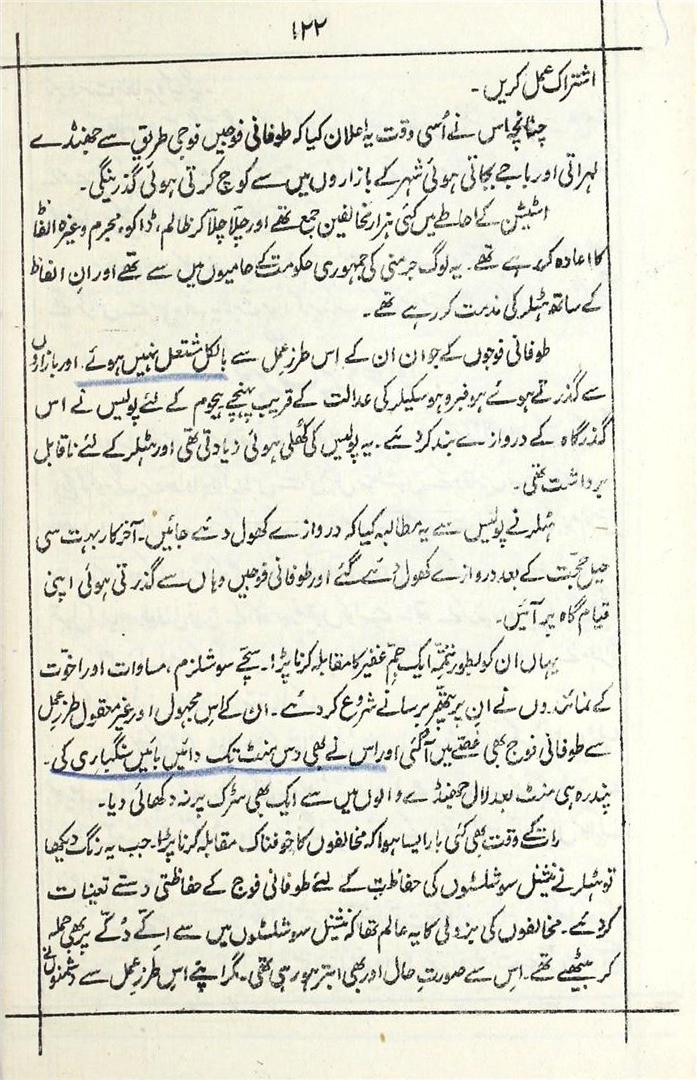 ۱۲۲
اشتراک عمل کریں۔
چنانچہ اس نے اُسی وقت یہ اعلان کیا کہ طوفانی فوجیں فوجی طریق سے جھنڈے
لہراتی اور باجے بجاتی ہوئی شہر کے بازاروں میں سے کوچ کرتی ہوئی گذرینگی۔
اسٹیشن کے احاطے میں کئی ہزار مخالفین جمع تھے اور چلّا چلّا کر ظالم، ڈاکو، مجرم وغیرہ الفاظ
کا اعادہ کر رہے تھے۔ یہ لوگ جرمنی کی جمہوری حکومت کے حامیوں میں سے تھے اور ان الفاظ
کے ساتھ ہٹلر کی مذمت کر رہے تھے۔
طوفانی فوجوں کے جوان ان کے اس طرزِ عمل سے بالکل مشتعل نہیں ہوئے۔ اور بازاروں
سے گذرتے ہوئے ہوفبروہوسکیلر کی عدالت کے قریب پہنچے ہجوم کے لئے پولیس نے اس
گذرگاہ کے دروازے بند کر دئے۔ یہ پولیس کی کُھلی ہوئی زیادتی تھی اور ہٹلر کے لئے ناقابل
برداشت تھی۔
ہٹلر نے پولیس سے یہ مطالبہ کیا کہ دروازے کھول دئے جائیں۔ آخرکار بہت سی
حیل حجت کے بعد دروازے کھول دئے گئے اور طوفانی فوجیں وہاں سے گذرتی ہوئی اپنی
قیام گاہ پر آئیں۔
یہاں ان کو بطور نتیجہ ایک جم غفیر کا مقابلہ کرنا پڑا۔ سچّے سوشلزم، مساوات اور اخوّت
کے نمائندوں نے ان پر پتھر برسانے شروع کر دئے۔ ان کے اس مجہول اور غیر معقول طرزِ عمل
سے طوفانی فوج بھی غصّے میں آ گئی اور اس نے بھی دس منٹ تک دائیں بائیں سنگباری کی۔
پندرہ ہی منٹ بعد لال جھنڈے والوں میں سے ایک بھی سڑک پر نہ دکھائی دیا۔
رات کے وقت بھی کئی بار ایسا ہوا کہ مخالفوں کا خوفناک مقابلہ کرنا پڑا۔ جب یہ رنگ دیکھا
تو ہٹلر نے نیشنل سوشلسٹوں کی حفاظت کے لئے طوفانی فوج کے حفاظتی دستے تعینات
کر دئے۔ مخالفوں کی بزدلی کا یہ عالم تھا کہ نیشنل سوشلسٹوں میں سے اِکّے دُکّے پر بھی حملہ
کر بیٹھے تھے۔ اس سے صورتِ حال اور بھی ابتر ہو رہی تھی۔ مگر اپنے اس طرزِ عمل سے دشمنوں نے